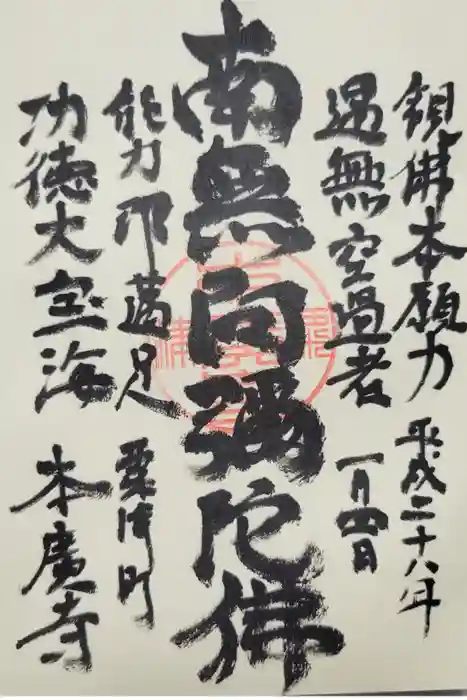 観佛本願力 平成二十八年
遇無空過者 一月四日
南無阿彌陀佛
能令速満足 粟津町
功徳大宝海 本廣寺